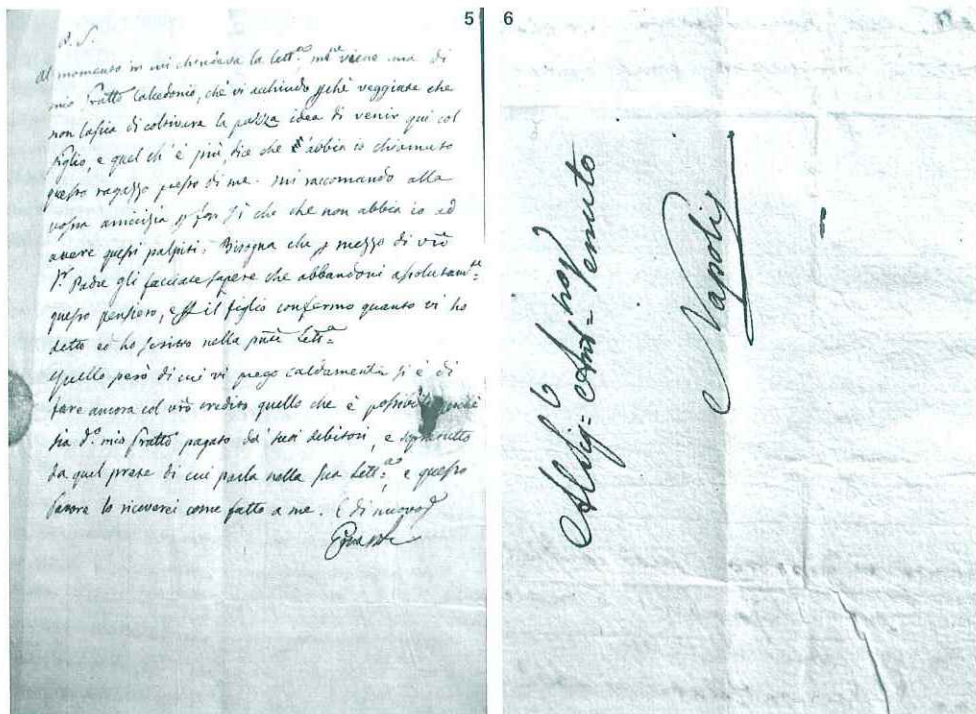 5
P.S.
Al momento in cui chiudeva la lett.ª me viene una di
mio Fratto Calcedonio, che vi acchiudo pchè veggiate che
non lascia di coltivare la pazza idea di venir qui col
figlio, e quel ch'è più, dice che l'abbia io chiamato
questo ragazzo presso di me. Mi raccomando alla
vostra amicizia p far sì che che non abbia io ad
avere questi palpiti. Bisogna che p mezzo di vrō
Sr. Padre gli facciate sapere che abbandoni assolutamte
questo pensiero, e il figlio confermo quanto vi ho
detto ed ho scritto nella pnte Letta
Quello però di cui vi prego caldamente si è di
fare ancora col vrō credito quello che è possibile
sia do mio Fratto pagato da' suoi debitori, e soprattutto
da quel prete di cui parla nella sua Letta, e questo
favore lo riceverei come fatto a me. E di nuovo
6
Al Sig: Ant=
Napoli